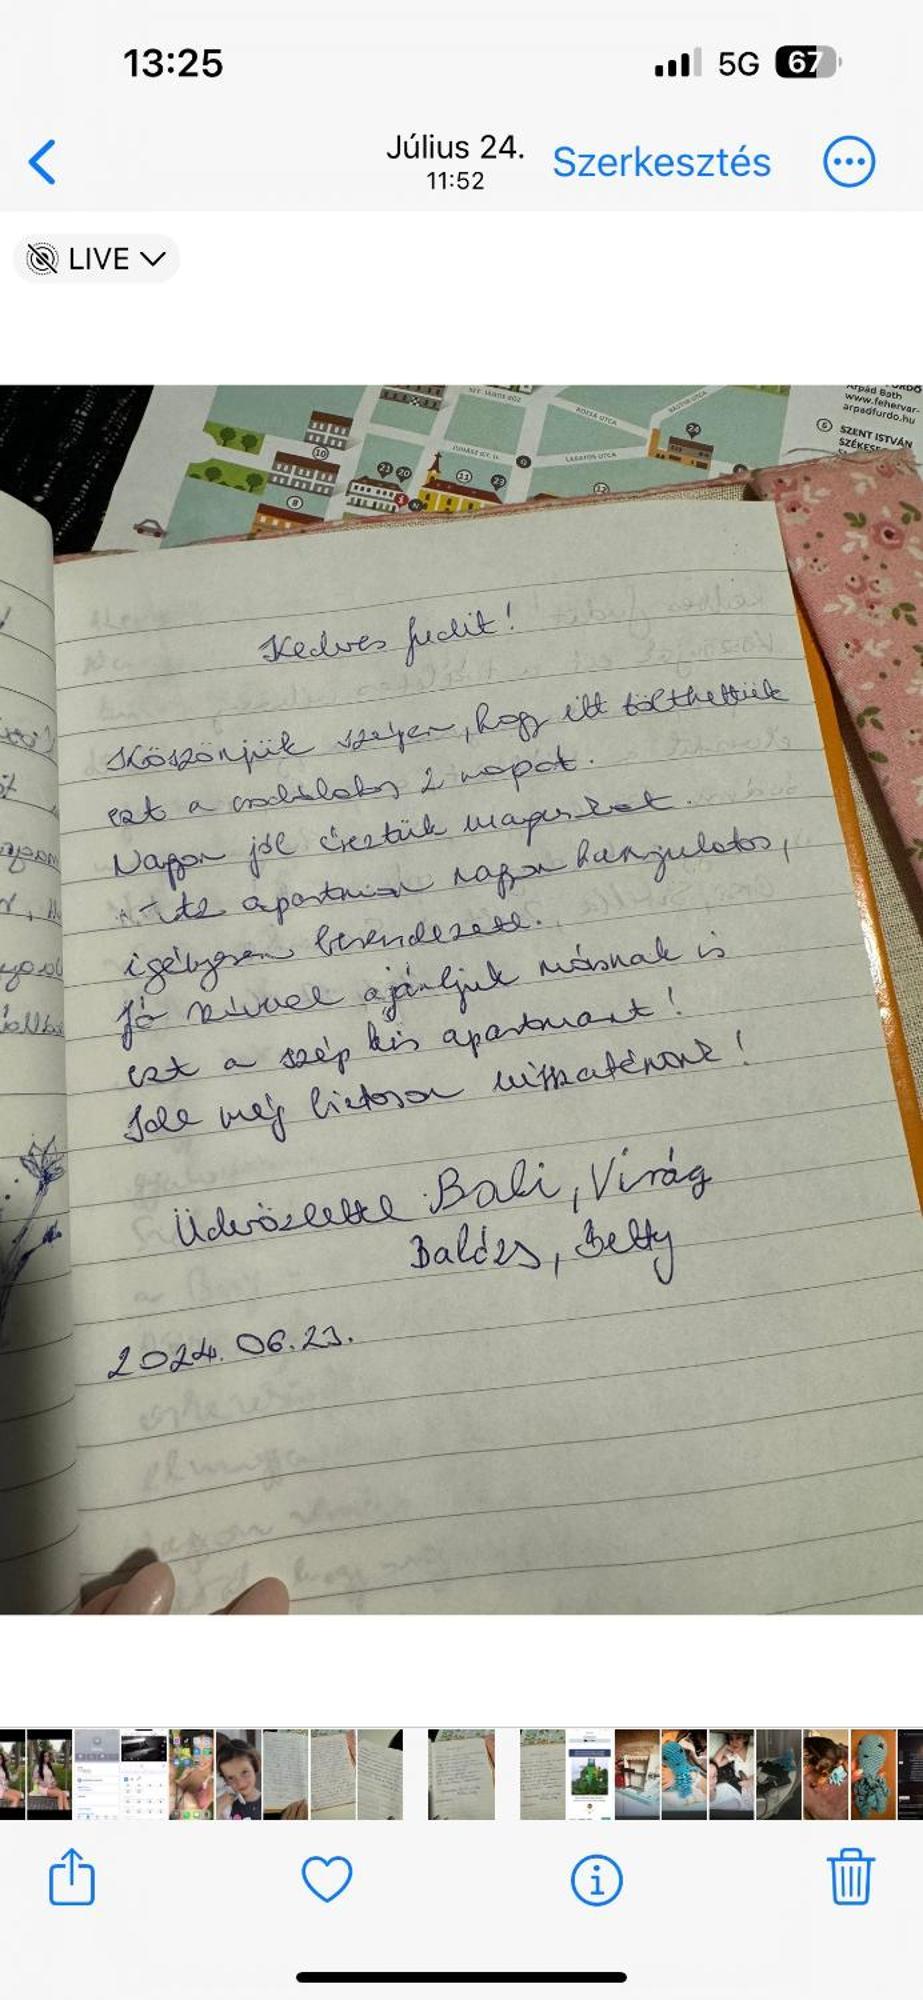 13:25
5G 67
Július 24.
11:52
Szerkesztés
LIVE
SZT. JÁNOS KÖZ
RÓZSA UTCA
JUHÁSZ GY. U.
LAKATOS UTCA
Árpád Bath
www.fehervar
arpadfurdo.hu
6 SZENT ISTVÁN
SZÉKESF
10
21 20
11
23
24
12
8
Kedves Judit!
Köszönjük szépen, hogy itt tölthettük
ezt a csodálatos 2 napot.
Nagyon jól éreztük magunkat.
Az apartman nagyon hangulatos,
igényesen berendezett.
Jó szívvel ajánljuk másnak is
ezt a szép kis apartmant!
Ide még biztosan visszatérünk!
Üdvözlettel Bali, Virág
Balázs, Betty
2024.06.23.